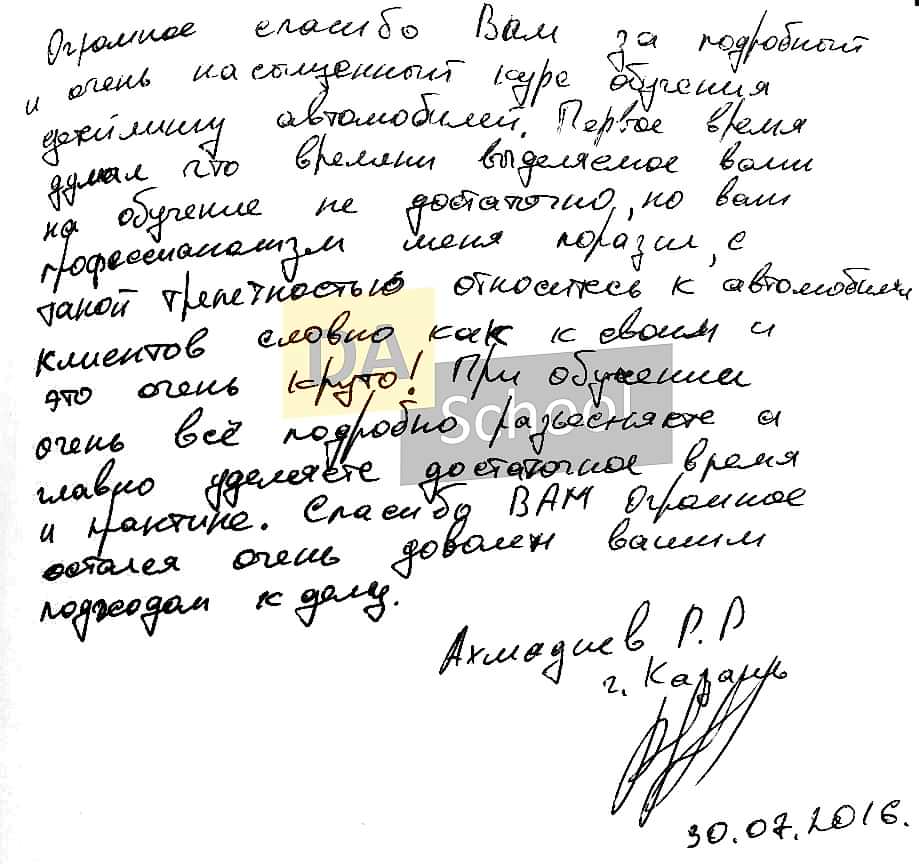 Огромное спасибо Вам за подробный
и очень насыщенный курс обучения
детейлингу автомобилей. Первое время
думал что времени выделяемое вами
на обучение не достаточно, но ваш
профессионализм меня поразил, с
такой трепетностью относитесь к автомобилям
клиентов словно как к своим и
это очень круто! При обучении
очень всё подробно разъесняете а
главно уделяете достаточное время
и практике. Спасибо ВАМ Огромное
остался очень доволен вашим
подходом к делу.
Ахмадиев Р.Р
г. Казань
30.07.2016.
DA
School